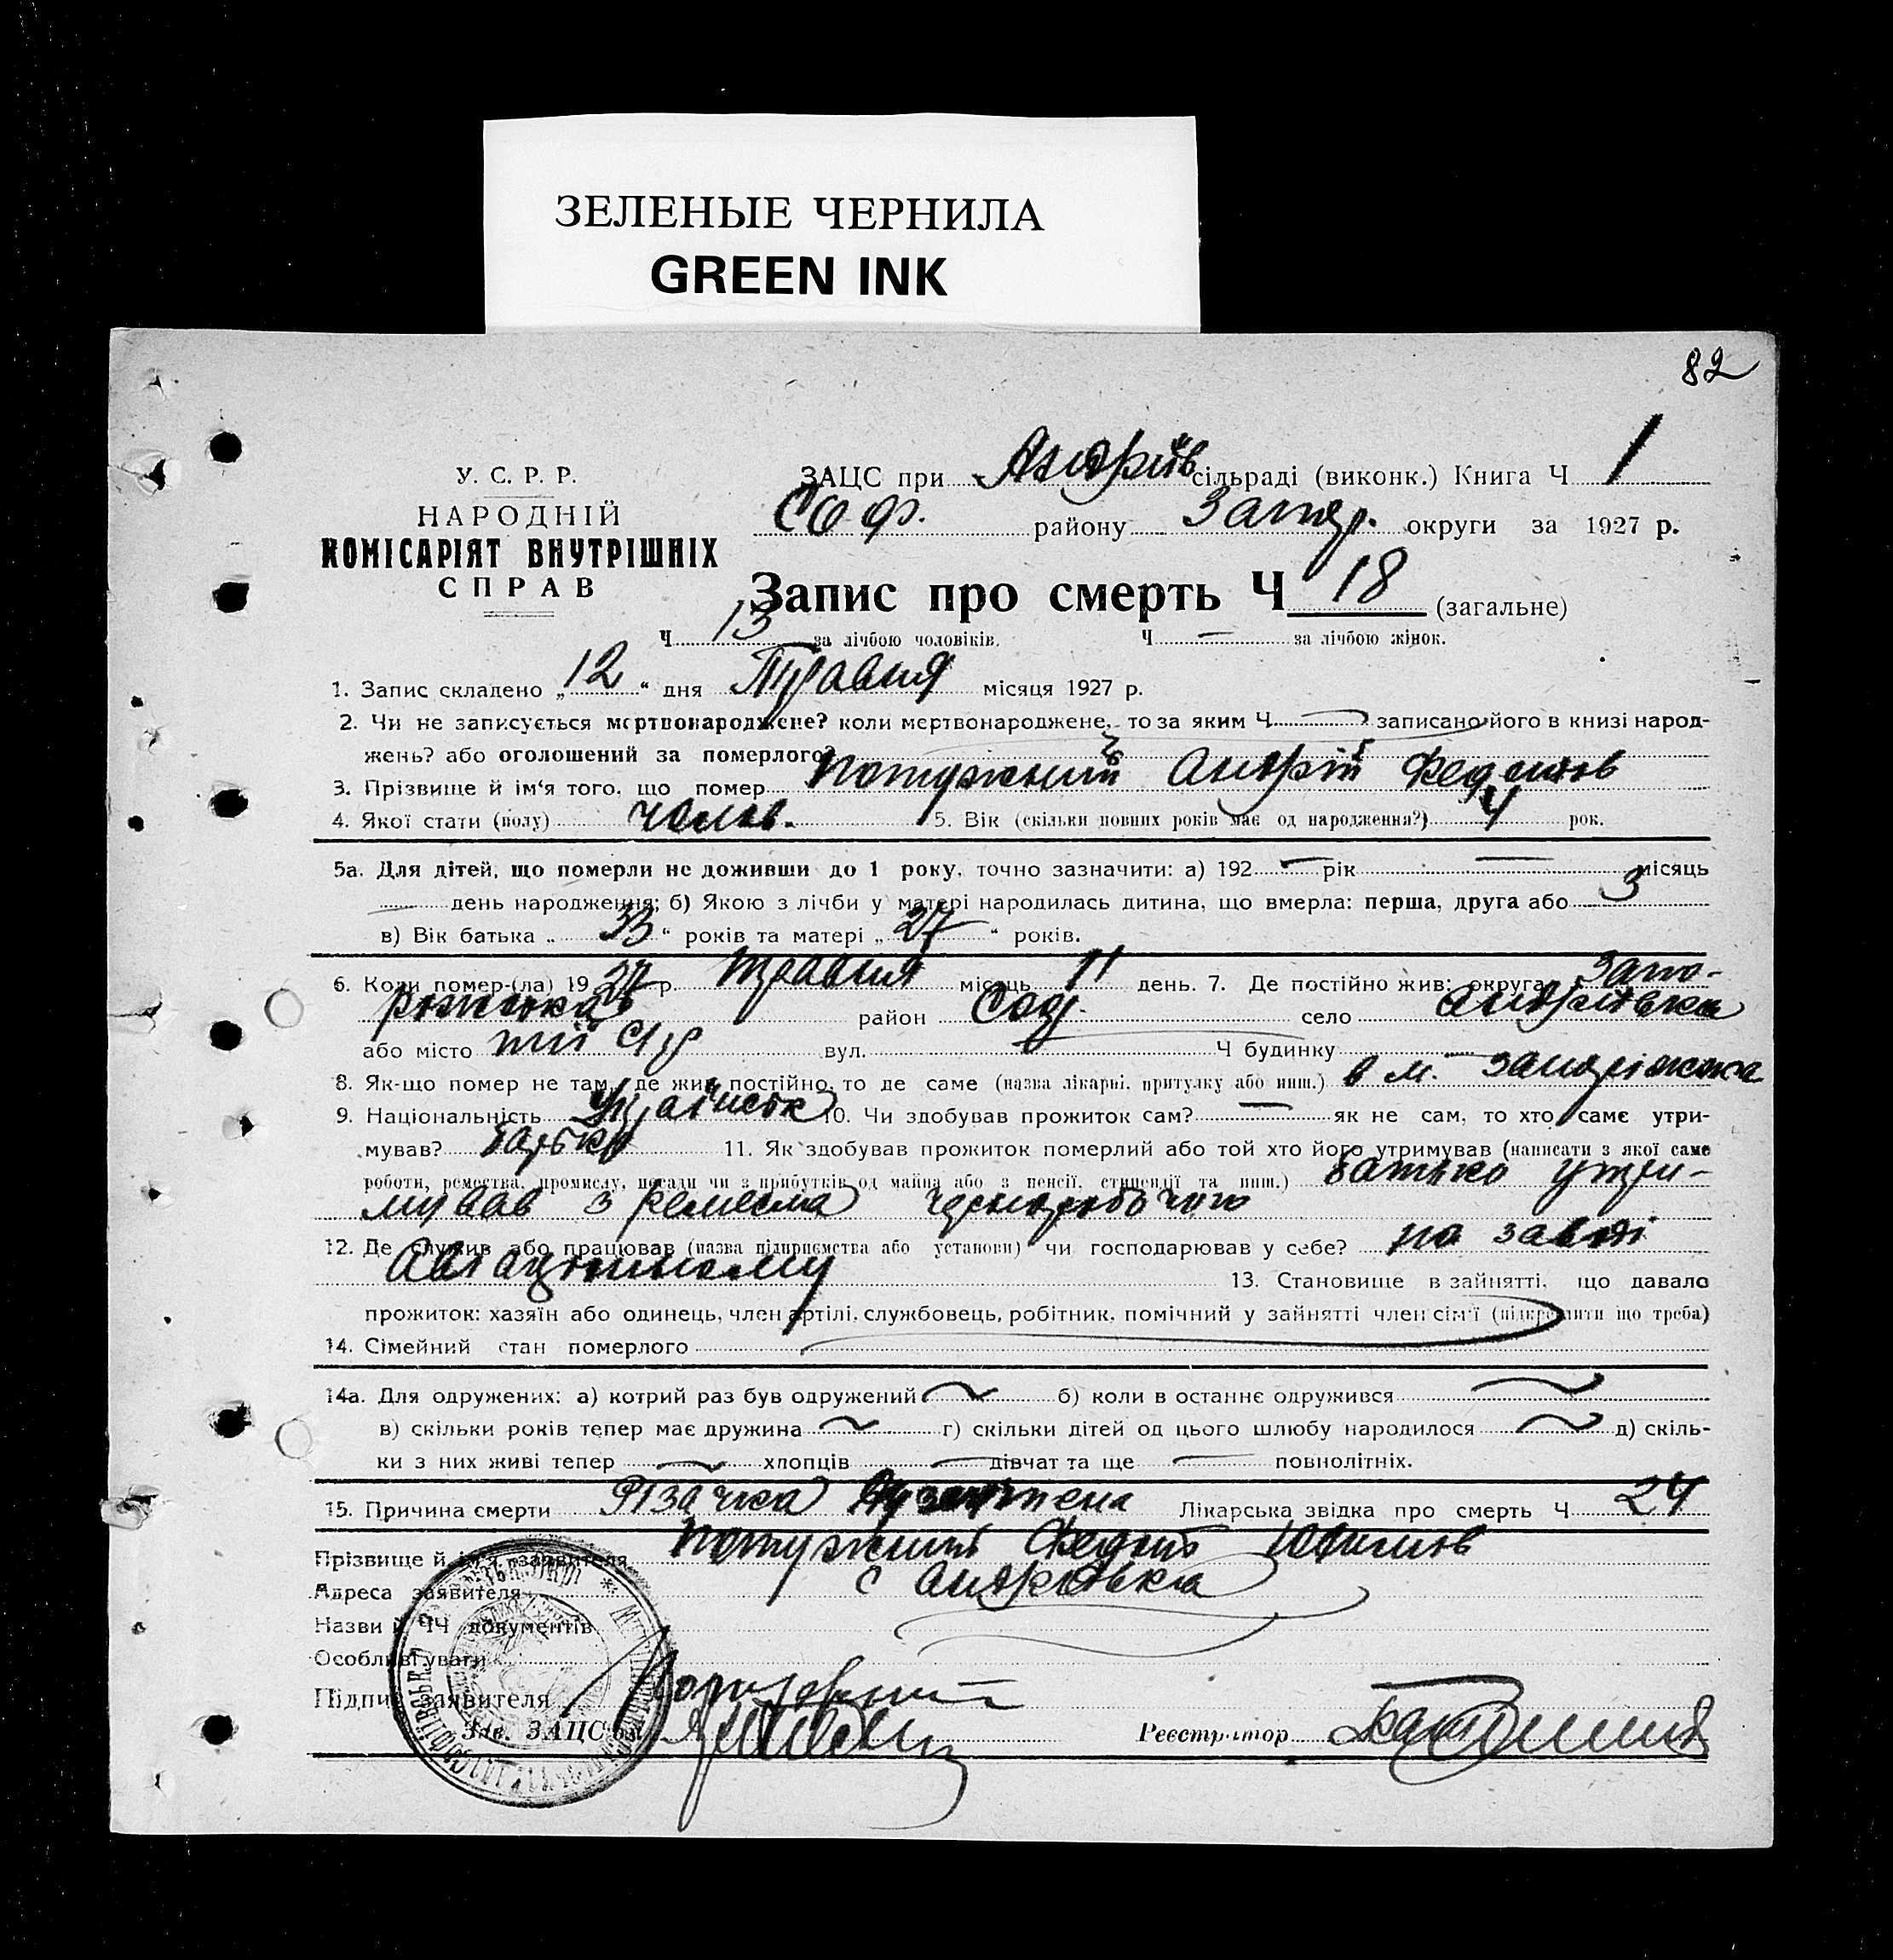 ЗЕЛЕНЫЕ ЧЕРНИЛА
GREEN INK
82
У. С. Р. Р.
НАРОДНІЙ
КОМІСАРІЯТ ВНУТРІШНІХ
СПРАВ
ЗАЦС при Андріїв сільраді (виконк.) Книга Ч 1
Соф. району Запор. округи за 1927 р.
Запис про смерть Ч 18 (загальне)
Ч 13 за лічбою чоловіків. Ч — за лічбою жінок.
1. Запис складено „ 12 “ дня Травня місяця 1927 р.
2. Чи не записується мертвонароджене? коли мертвонароджене, то за яким Ч. записано його в книзі народ-
жень? або оголошений за померлого?
3. Прізвище й ім'я того, що помер Потужний Андрій Федотов
4. Якої стати (полу) чолов. 5. Вік (скільки повних років має од народження?) 4 рок.
5а. Для дітей, що померли не доживши до 1 року, точно зазначити: а) 192 — рік — місяць
— день народження; б) Якою з лічби у матері народилась дитина, що вмерла: перша, друга або 3
в) Вік батька „ 33 “ років та матері „ 27 “ років.
6. Коли помер-(ла) 1927 р. травня місяць 11 день. 7. Де постійно жив: округа Запо-
рожська район Соф. село Андріівка
або місто вул. Ч будинку
8. Як-що помер не там, де жив постійно, то де саме (назва лікарні, притулку або инш.) в м. Запоріжжя
9. Національність Україньск 10. Чи здобував прожиток сам? — як не сам, то хто саме утри-
мував? батько 11. Як здобував прожиток померлий або той хто його утримував (написати з якої саме
роботи, ремества, промислу, посади чи з прибутків од майна або з пенсії, стипендії та инш.) батько утри-
мував з ремесла чорноробочого
12. Де служив або працював (назва підприємства або установи) чи господарював у себе? на заводі
Авіаціонному 13. Становище в зайнятті, що давало
прожиток: хазяїн або одинець, член артілі, службовець, робітник, помічний у зайнятті член сім'ї (підкреслити що треба)
14. Сімейний стан померлого
14а. Для одружених: а) котрий раз був одружений б) коли в останнє одружився
в) скільки років тепер має дружина г) скільки дітей од цього шлюбу народилося д) скіль-
ки з них живі тепер хлопців дівчат та ще повнолітніх.
15. Причина смерти Різачка Лікарська звідка про смерть Ч 24
Прізвище й ім'я заявителя Потужний Федот
Адреса заявителя с Андріівка
Назви й ЧЧ документів
Особливі уваги
Підпис заявителя
Зав. ЗАЦС'ом Реєстратор